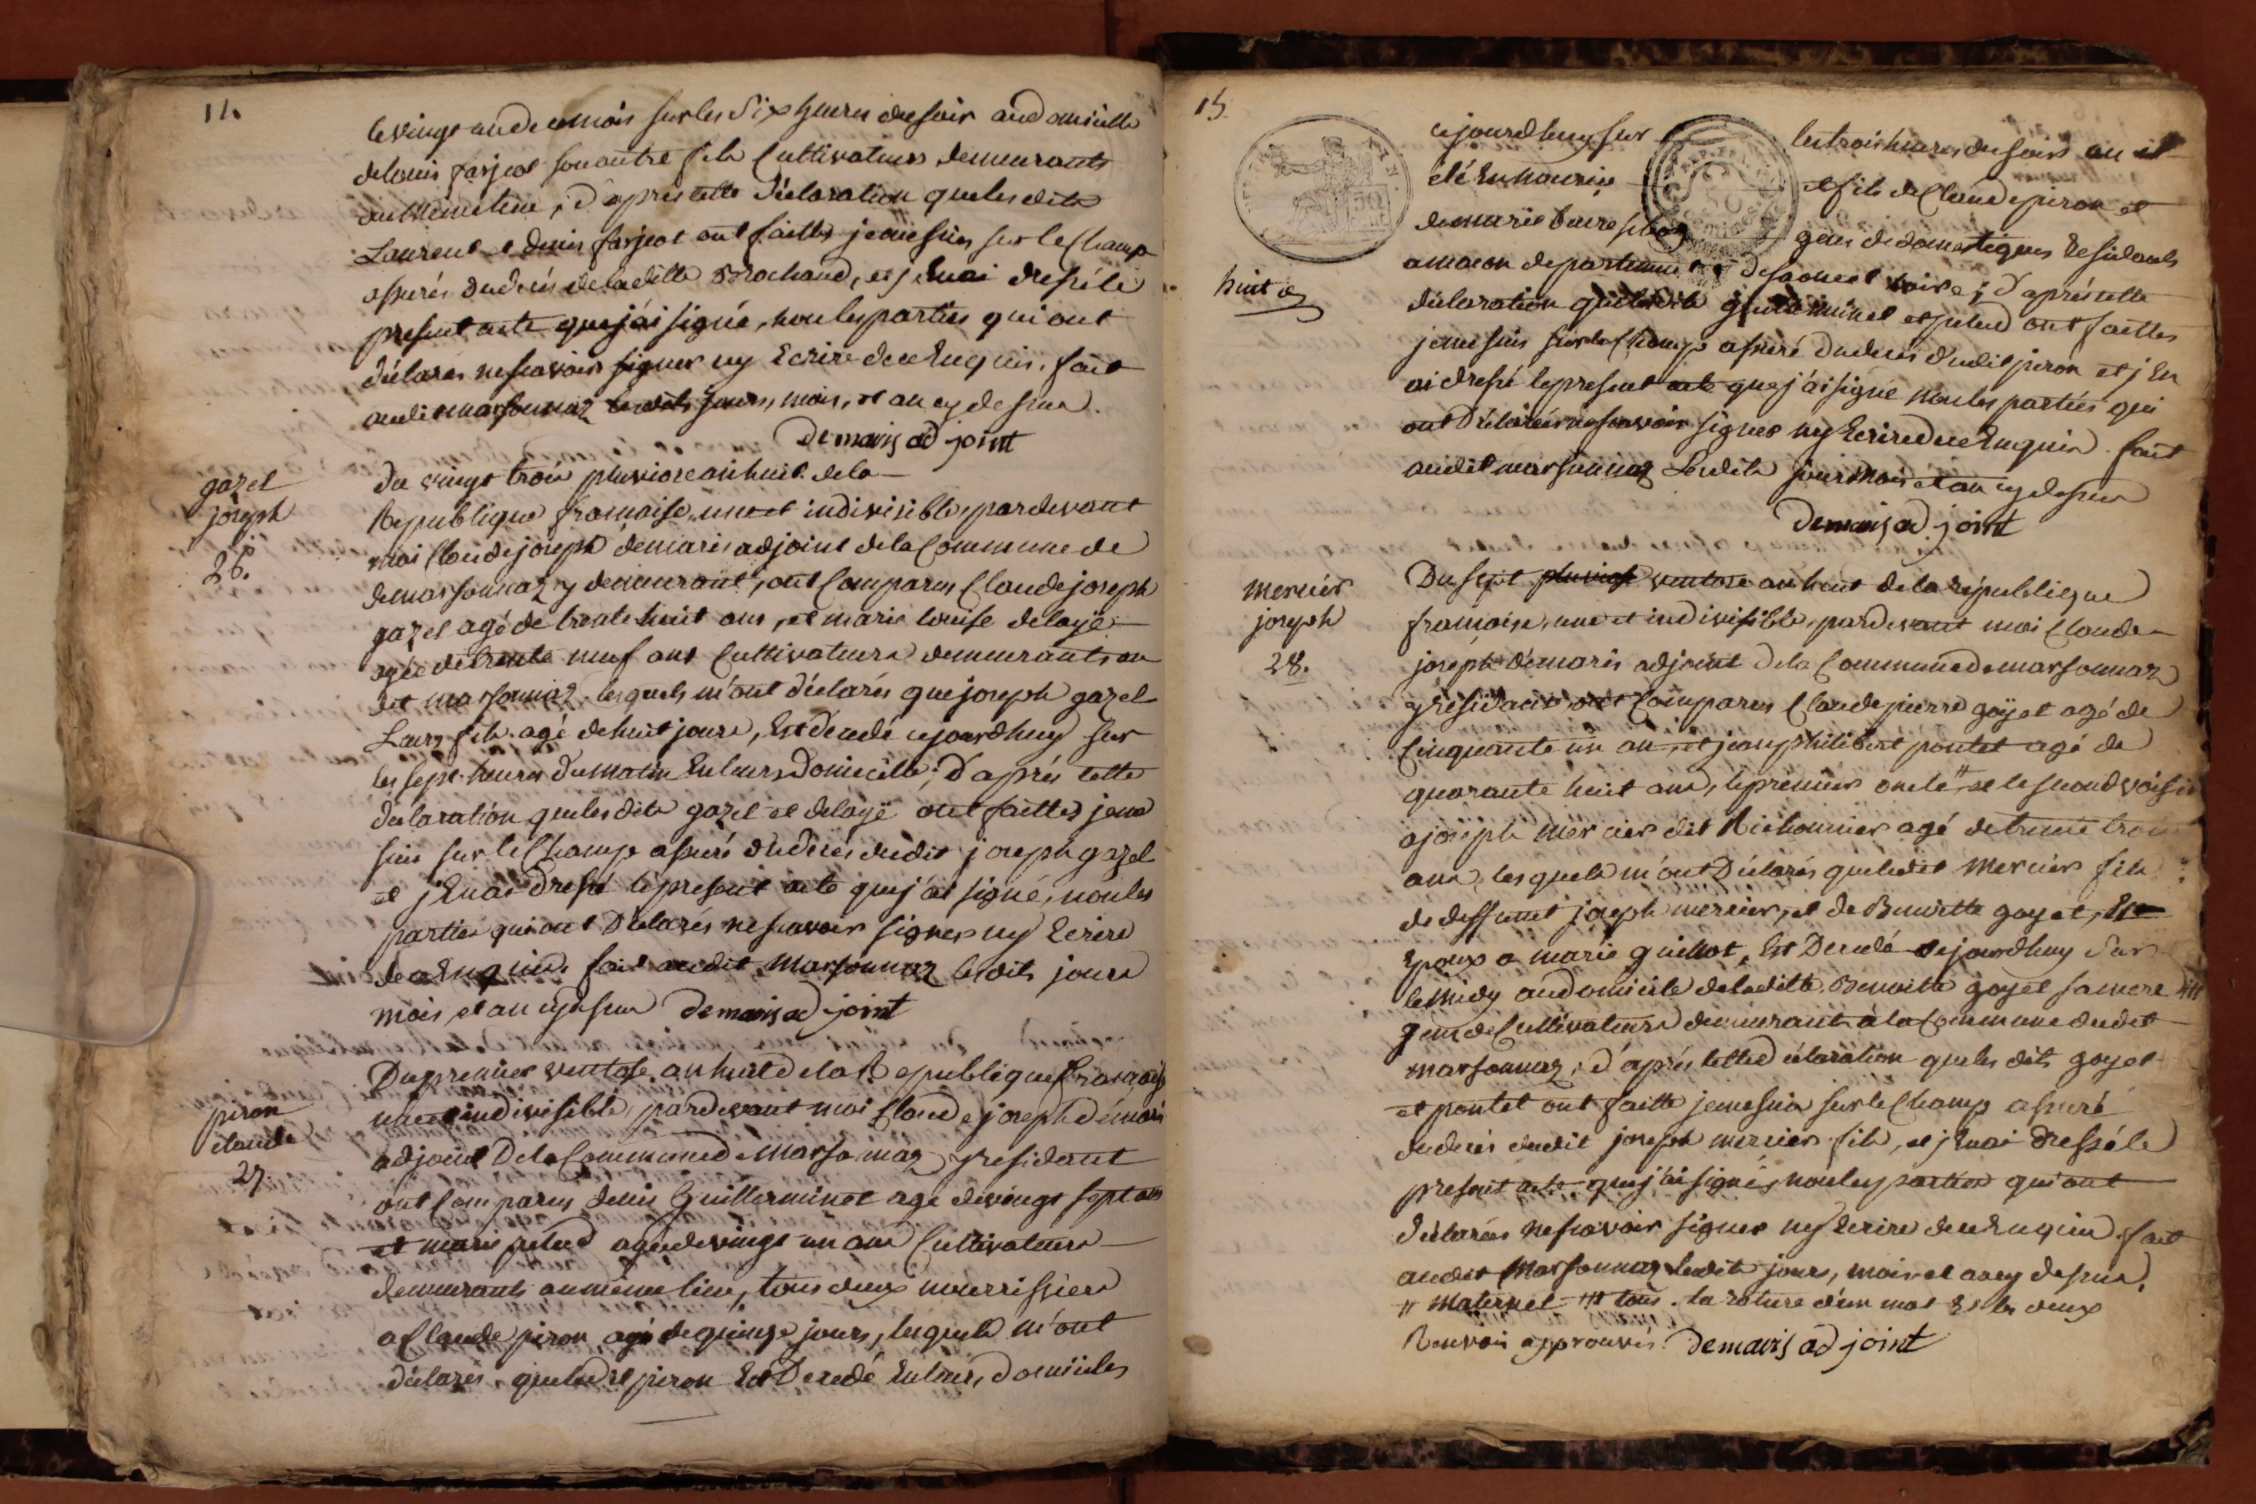 14.
le vingt un de ce mois sur les six heures du soir au domicille
de louis farjeot son autre fils Cultivateurs demeurants
au même lieu, d'après cette déclaration que les dits
Laurent et denis farjeot ont faitte je me suis sur le Champ
assurés du décés de la ditte Brochand, et j'en ai dressé le
present acte que j'ai signé, non les parties qui ont
déclarés ne scavoir signer ny Ecrire de ce Enquis. fait
audit marsonnaz lesdits jours, mois, et an cy dessus.
Demaris adjoint
gazel
joseph
26.
Du vingt trois pluviose an huit de la
Republique francaise, une et indivisible, pardevant
moi Claude joseph démaris adjoint de la Commune de
de marsonnaz y demeurant, ont Comparus Claude joseph
gazel agé de trente huit ans, et marie louise delaye
agée de trente neuf ans Cultivateurs demeurants au
dit marsonnaz. lesquels m'ont déclarés que joseph gazel
Leurs fils agé de huit jours, Est décedé cejourdhuy sur
les sept heures du matin En leurs domicille; d'après cette
déclaration que les dits gazel et delaye ont faittes je me
suis sur le Champ assuré du décés dudit joseph gazel
et j'En ai dressé le present acte que j'ai signé, non les
parties qui ont Déclarés ne scavoir signer ny Ecrire
de ce Enquis. fait audit Marsonnaz lesdits jours
mois, et an cy dessus Demaris adjoint
piron
claude
27
Du premier ventose an huit de la Republique francaise
une et indivisible, pardevant moi Claude joseph démaris
adjoint De la Commune de Marsonnaz y residant
ont Comparus denis Guillerminet agé de vingt sept ans
et marie agée de vingt un ans Cultivateurs
demeurants au même lieu, tous deux nourrissiers
a Claude piron agé de quinze jours, lesquels m'ont
déclarés que ledit piron Est Decedé En leurs domiciles
15.
cejourdhuy sur les trois heures du soir ou il
été En nourrice et fils de Claude piron et
de marie gens de domestiques residants
a macon departement de saone et loire; d'après cette
huit
déclaration que lesdits guillerminet et ont faittes
je me suis sur le Champ assuré du decés dudit piron et j'En
ai dressé le present acte que j'ai signé non les parties qui
ont Déclarés ne scavoir signer ny Ecrire de ce Enquis. fait
audit marsonnaz Lesdits jours Mois et an cy dessus
Demaris adjoint
mercier
joseph
28.
Du sept pluviose ventose an huit de la république
francaise, une et indivisible, pardevant moi Claude
joseph démaris adjoint De la Commune de marsonnaz
y residant, ont Comparus Claude pierre goyet agé de
Cinquante un an, et jean philibert pontet agé de
quarante huit ans, le premier oncle " et le second voisin
a joseph mercier dit Richonnier agé de trente trois
ans, lesquels m'ont Déclarés que ledit Mercier fils
de deffunt joseph mercier, et de Benoitte goyet, Est
Epoux a marie guillot, Est Decedé cejourdhuy sur
le midy au domicile de la ditte Benoitte goyet sa mere ///
gens de Cultivateurs demeurant à la Commune dudit
marsonnaz, d'après cette déclaration que les dits goyet
et pontet ont faitte je me suis sur le Champ assuré
du decés dudit joseph mercier fils, et j'En ai Dressé le
present acte que j'ai signé, non les parties qui ont
déclarés ne scavoir signer ny Ecrire de ce Enquis. fait
audit Marsonnaz lesdits jours, mois et an cy dessus.
" Maternel /// tous. la roture d'un mot Et les deux
Renvois approuvés. Demaris adjoint